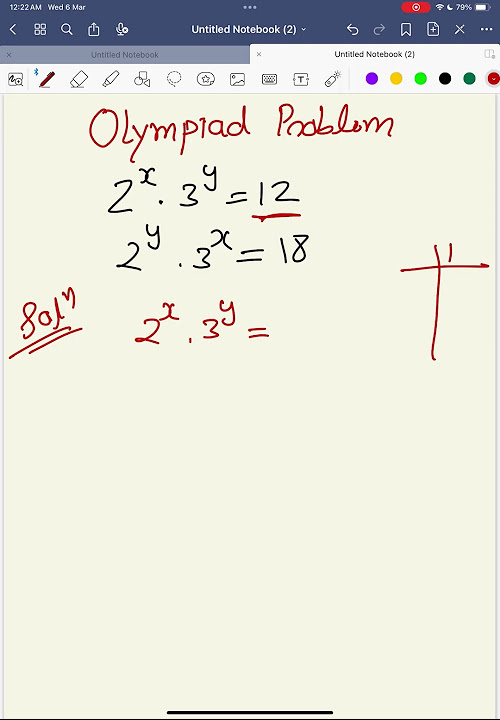 12:22 AM Wed 6 Mar 79%
Untitled Notebook (2)
Untitled Notebook
Untitled Notebook (2)
Olympiad Problem
2^x · 3^y = 12
2^y · 3^x = 18
Solⁿ
2^x · 3^y =